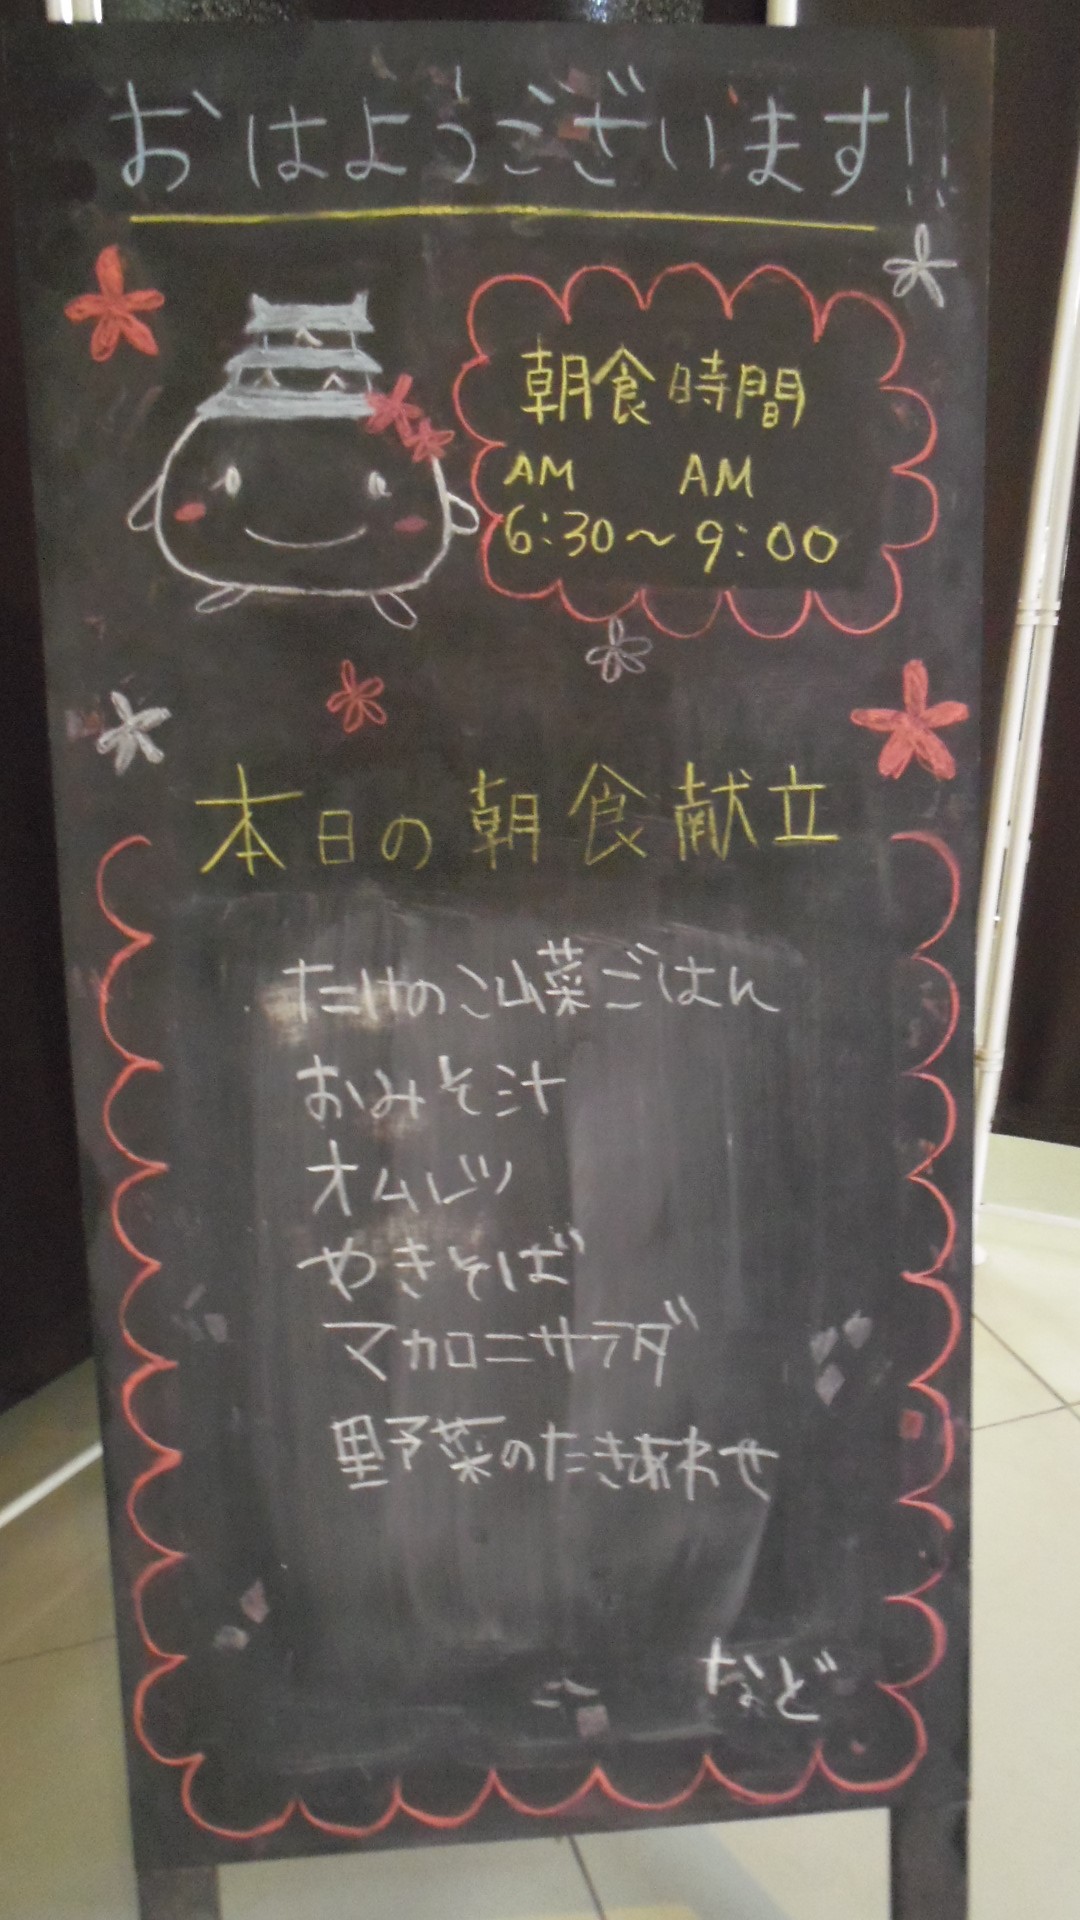 おはようございます!!
朝食時間
AM AM
6:30～9:00
本日の朝食献立
たけのこ山菜ごはん
おみそ汁
オムレツ
やきそば
マカロニサラダ
里野菜のたきあわせ
など